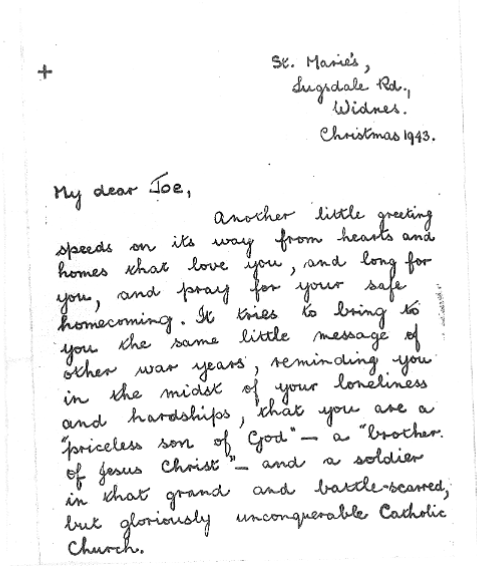 +
St. Marie's,
Lugsdale Rd.,
Widnes.
Christmas 1943.
My dear Joe,
Another little greeting
speeds on its way from hearts and
homes that love you, and long for
you, and pray for your safe
homecoming. It tries to bring to
you the same little message of
other war years, reminding you
in the midst of your loneliness
and hardships, that you are a
"priceless son of God" — a "brother
of Jesus Christ" — and a soldier
in that grand and battle-scarred,
but gloriously unconquerable Catholic
Church.